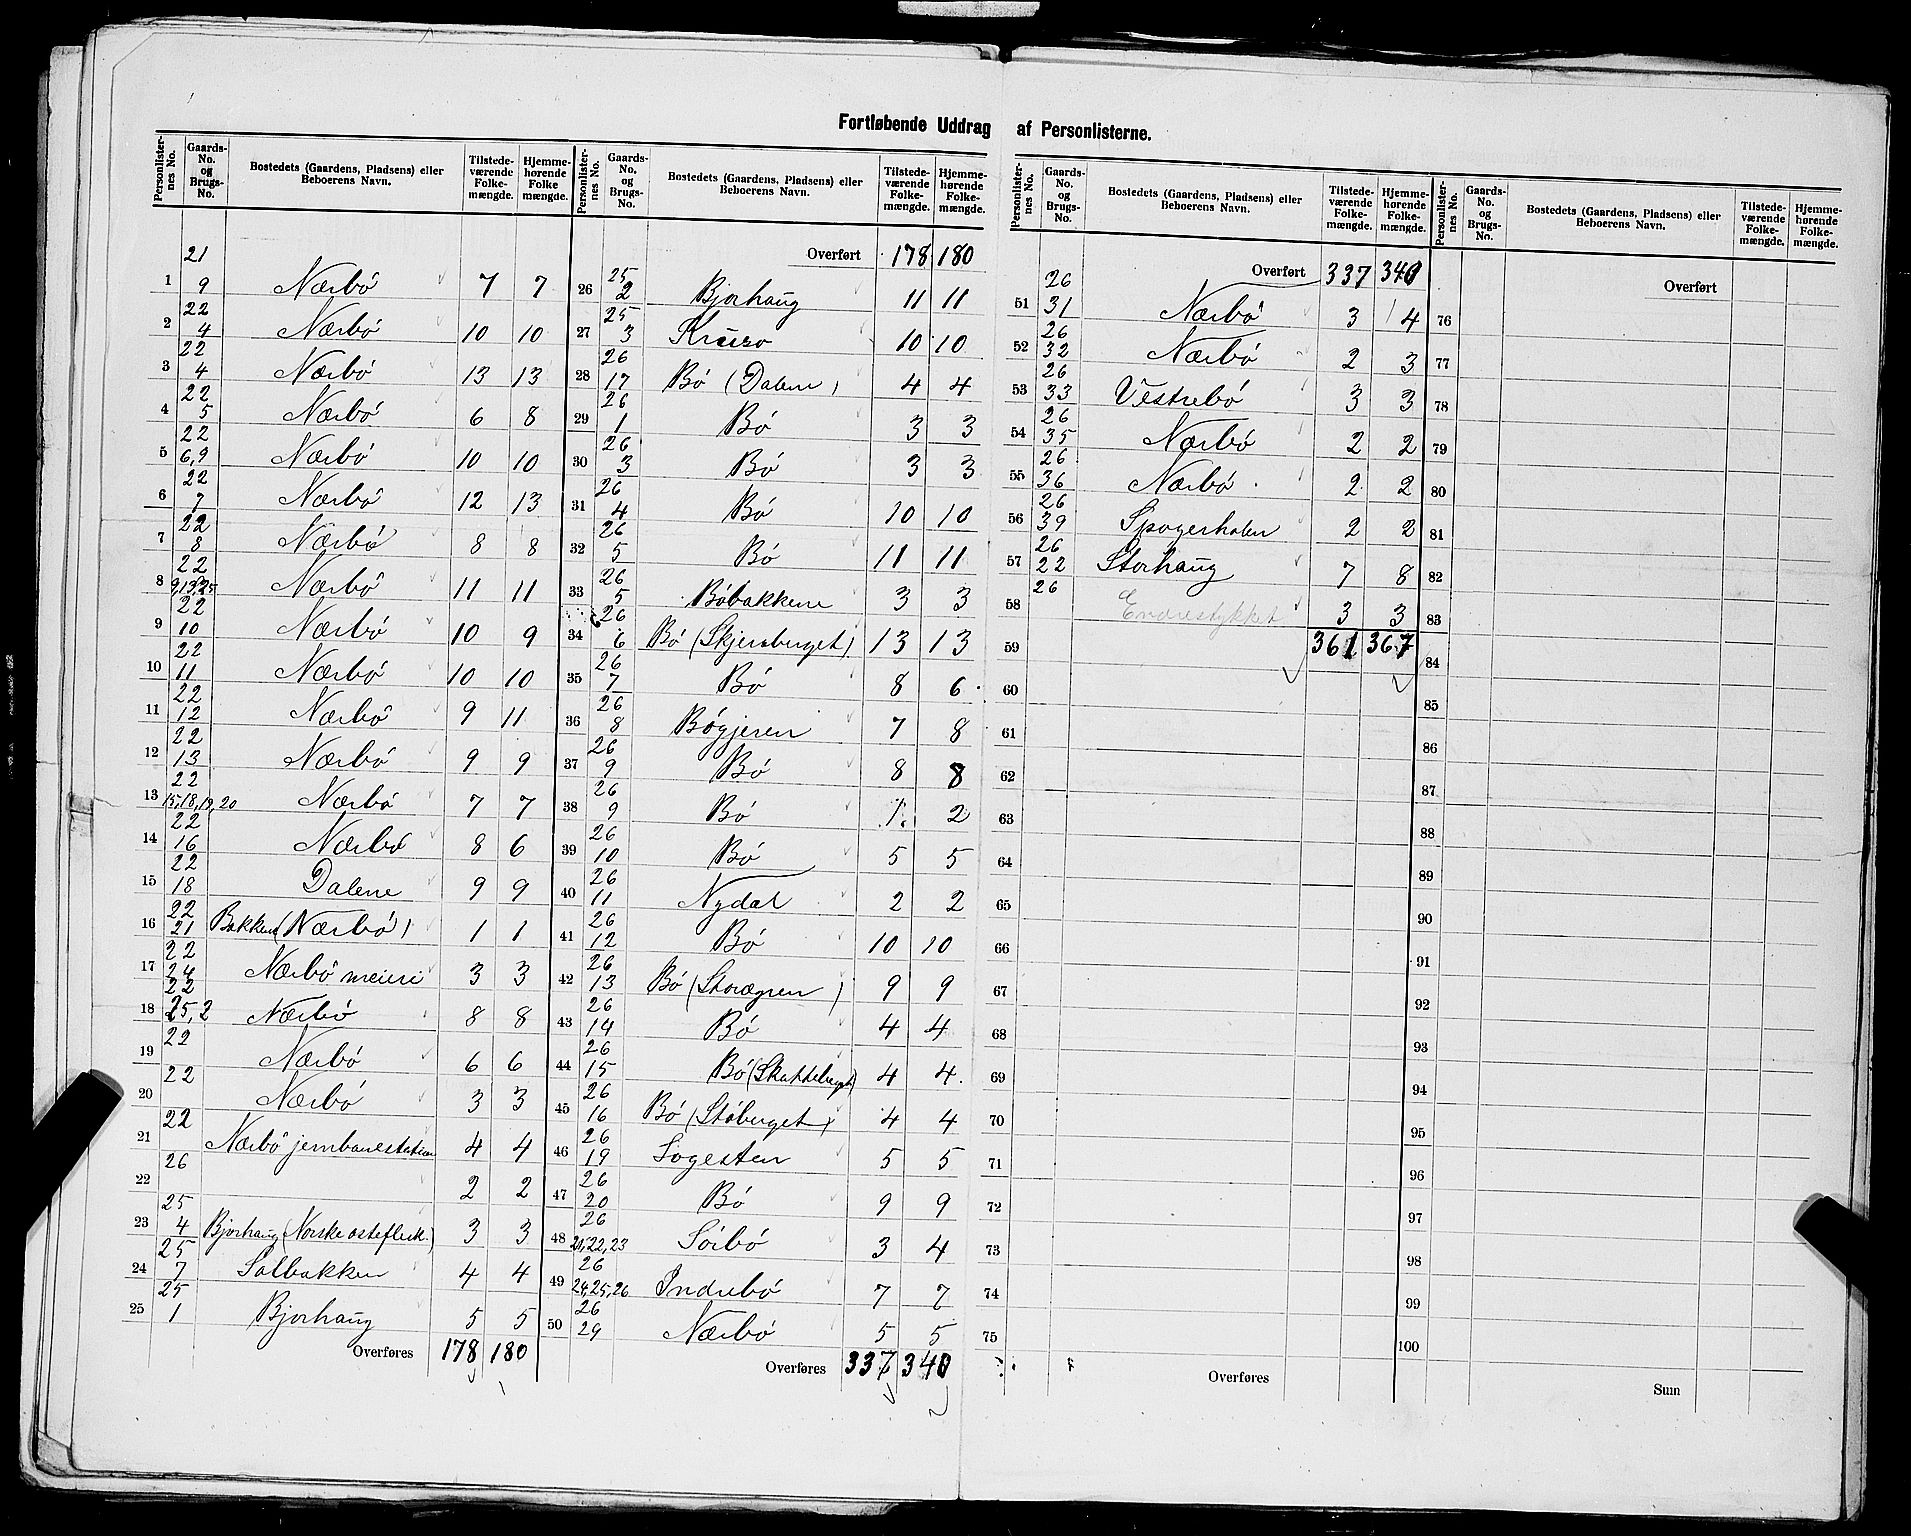 Fortløbende Uddrag af Personlisterne.
Personlisternes No. Gaards-No. og Brugs-No. Bostedets (Gaardens, Pladsens) eller Beboerens Navn. Tilstedeværende Folkemængde. Hjemmehørende Folkemængde.
1 21 9 Nærbø 7 7
2 22 4 Nærbø 10 10
3 22 4 Nærbø 13 13
4 22 5 Nærbø 6 8
5 22 6,9 Nærbø 10 10
6 22 7 Nærbø 12 13
7 22 8 Nærbø 8 8
8 22 9,13,25 Nærbø 11 11
9 22 10 Nærbø 10 9
10 22 11 Nærbø 10 10
11 22 12 Nærbø 9 11
12 22 13 Nærbø 9 9
13 22 15,18,19,20 Nærbø 7 7
14 22 16 Nærbø 8 6
15 22 18 Dalene 9 9
16 22 21 Bakken (Nærbø) 1 1
17 22 24 Nærbø meieri 3 3
18 22 25,2 Nærbø 8 8
19 22 Nærbø 6 6
20 22 Nærbø 3 3
21 22 Nærbø jernbanestation 4 4
22 26 2 2
23 25 4 Bjorhaug (Norske 3 3
24 25 7 Solbakken 4 4
25 25 1 Bjorhaug 5 5
Overføres 178 180
Personlisternes No. Gaards-No. og Brugs-No. Bostedets (Gaardens, Pladsens) eller Beboerens Navn. Tilstedeværende Folkemængde. Hjemmehørende Folkemængde.
Overført 178 180
26 25 2 Bjorhaug 11 11
27 25 3 10 10
28 26 17 Bø (Dalene) 4 4
29 26 1 Bø 3 3
30 26 3 Bø 3 3
31 26 4 Bø 10 10
32 26 5 Bø 11 11
33 26 5 Bøbakkene 3 3
34 26 6 Bø (Skjersberget) 13 13
35 26 7 Bø 8 6
36 26 8 Bøgjeren 7 8
37 26 9 Bø 8 8
38 26 9 Bø 1 2
39 26 10 Bø 5 5
40 26 11 Nydal 2 2
41 26 12 Bø 10 10
42 26 13 Bø (Storægren) 9 9
43 26 14 Bø 4 4
44 26 15 Bø (Skatteberget) 4 4
45 26 16 Bø (Støberget) 4 4
46 26 19 Sogesten 5 5
47 26 20 Bø 9 9
48 26 21,22,23 Sørbø 3 4
49 26 24,25,26 Indrebø 7 7
50 26 29 Nærbø 5 5
Overføres 337 340
Personlisternes No. Gaards-No. og Brugs-No. Bostedets (Gaardens, Pladsens) eller Beboerens Navn. Tilstedeværende Folkemængde. Hjemmehørende Folkemængde.
Overført 337 340
51 26 31 Nærbø 3 4
52 26 32 Nærbø 2 3
53 26 33 Vestrebø 3 3
54 26 35 Nærbø 2 2
55 26 36 Nærbø 2 2
56 26 39 2 2
57 26 22 Storhaug 7 8
58 26 3 3
59 361 367
60
61
62
63
64
65
66
67
68
69
70
71
72
73
74
75
Overføres
Personlisternes No. Gaards-No. og Brugs-No. Bostedets (Gaardens, Pladsens) eller Beboerens Navn. Tilstedeværende Folkemængde. Hjemmehørende Folkemængde.
Overført
76
77
78
79
80
81
82
83
84
85
86
87
88
89
90
91
92
93
94
95
96
97
98
99
100
Sum